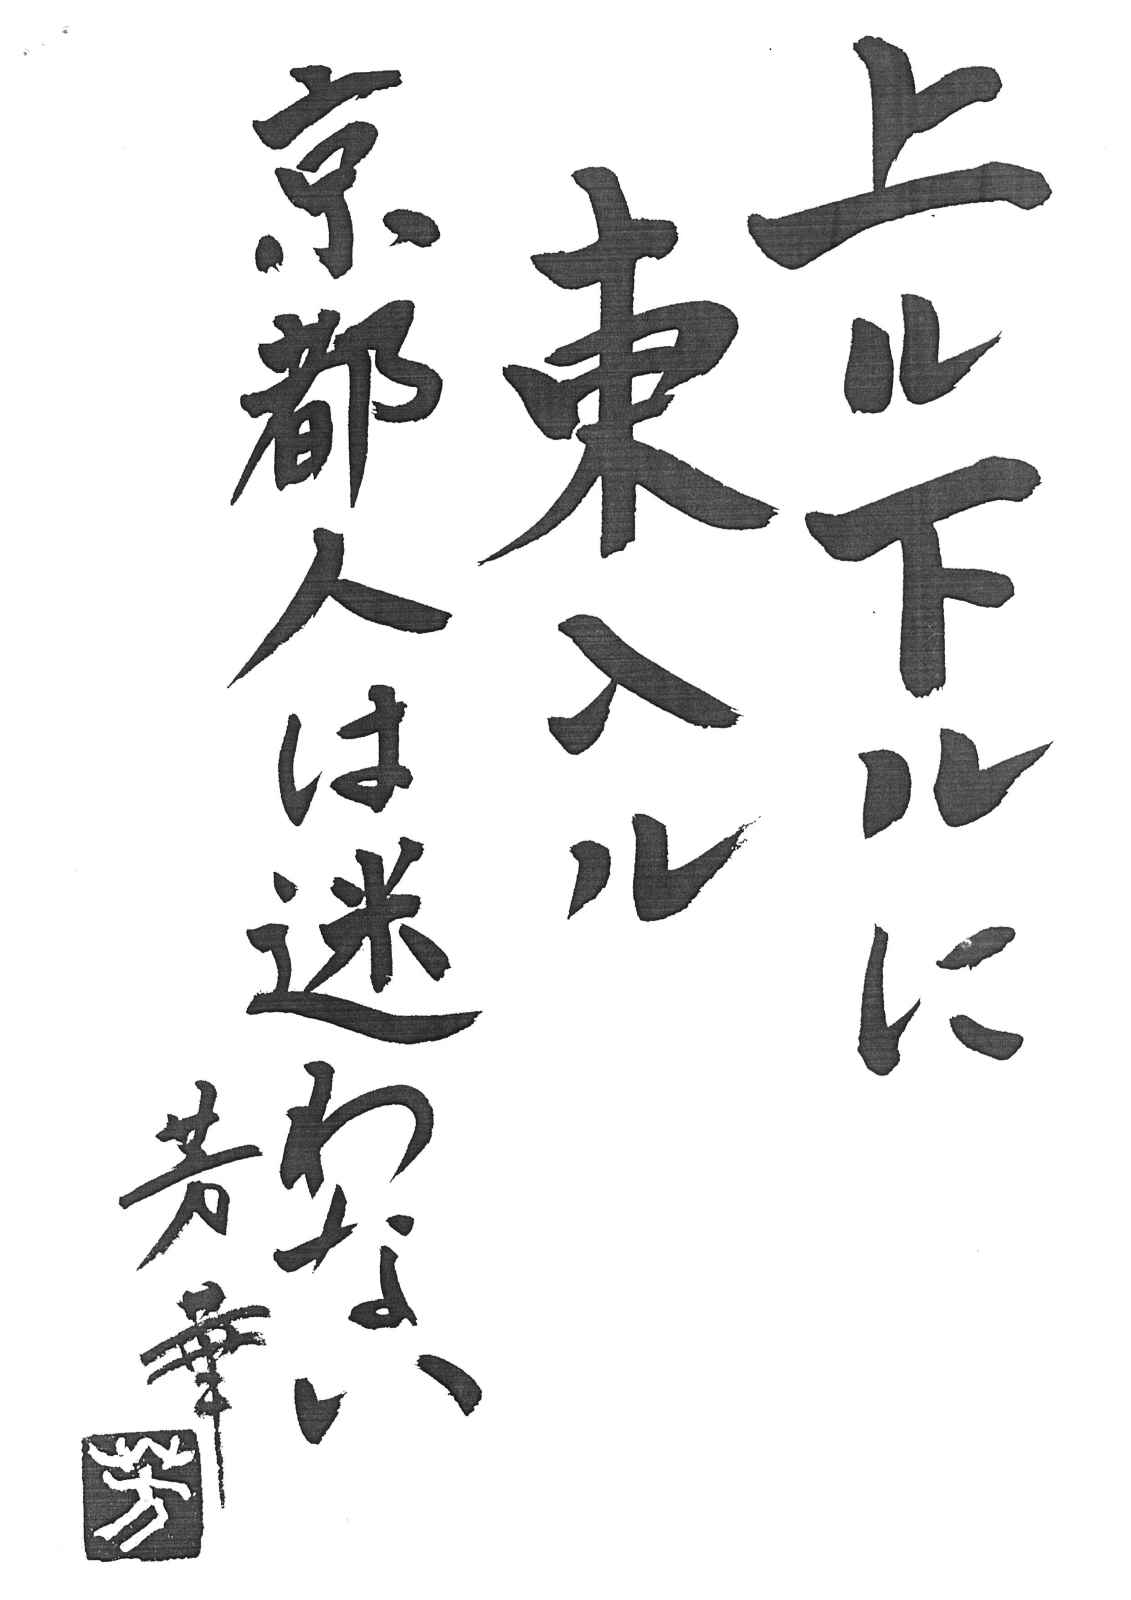 上ル下ルに
東入ル
京都人は迷わない
芳華
芳